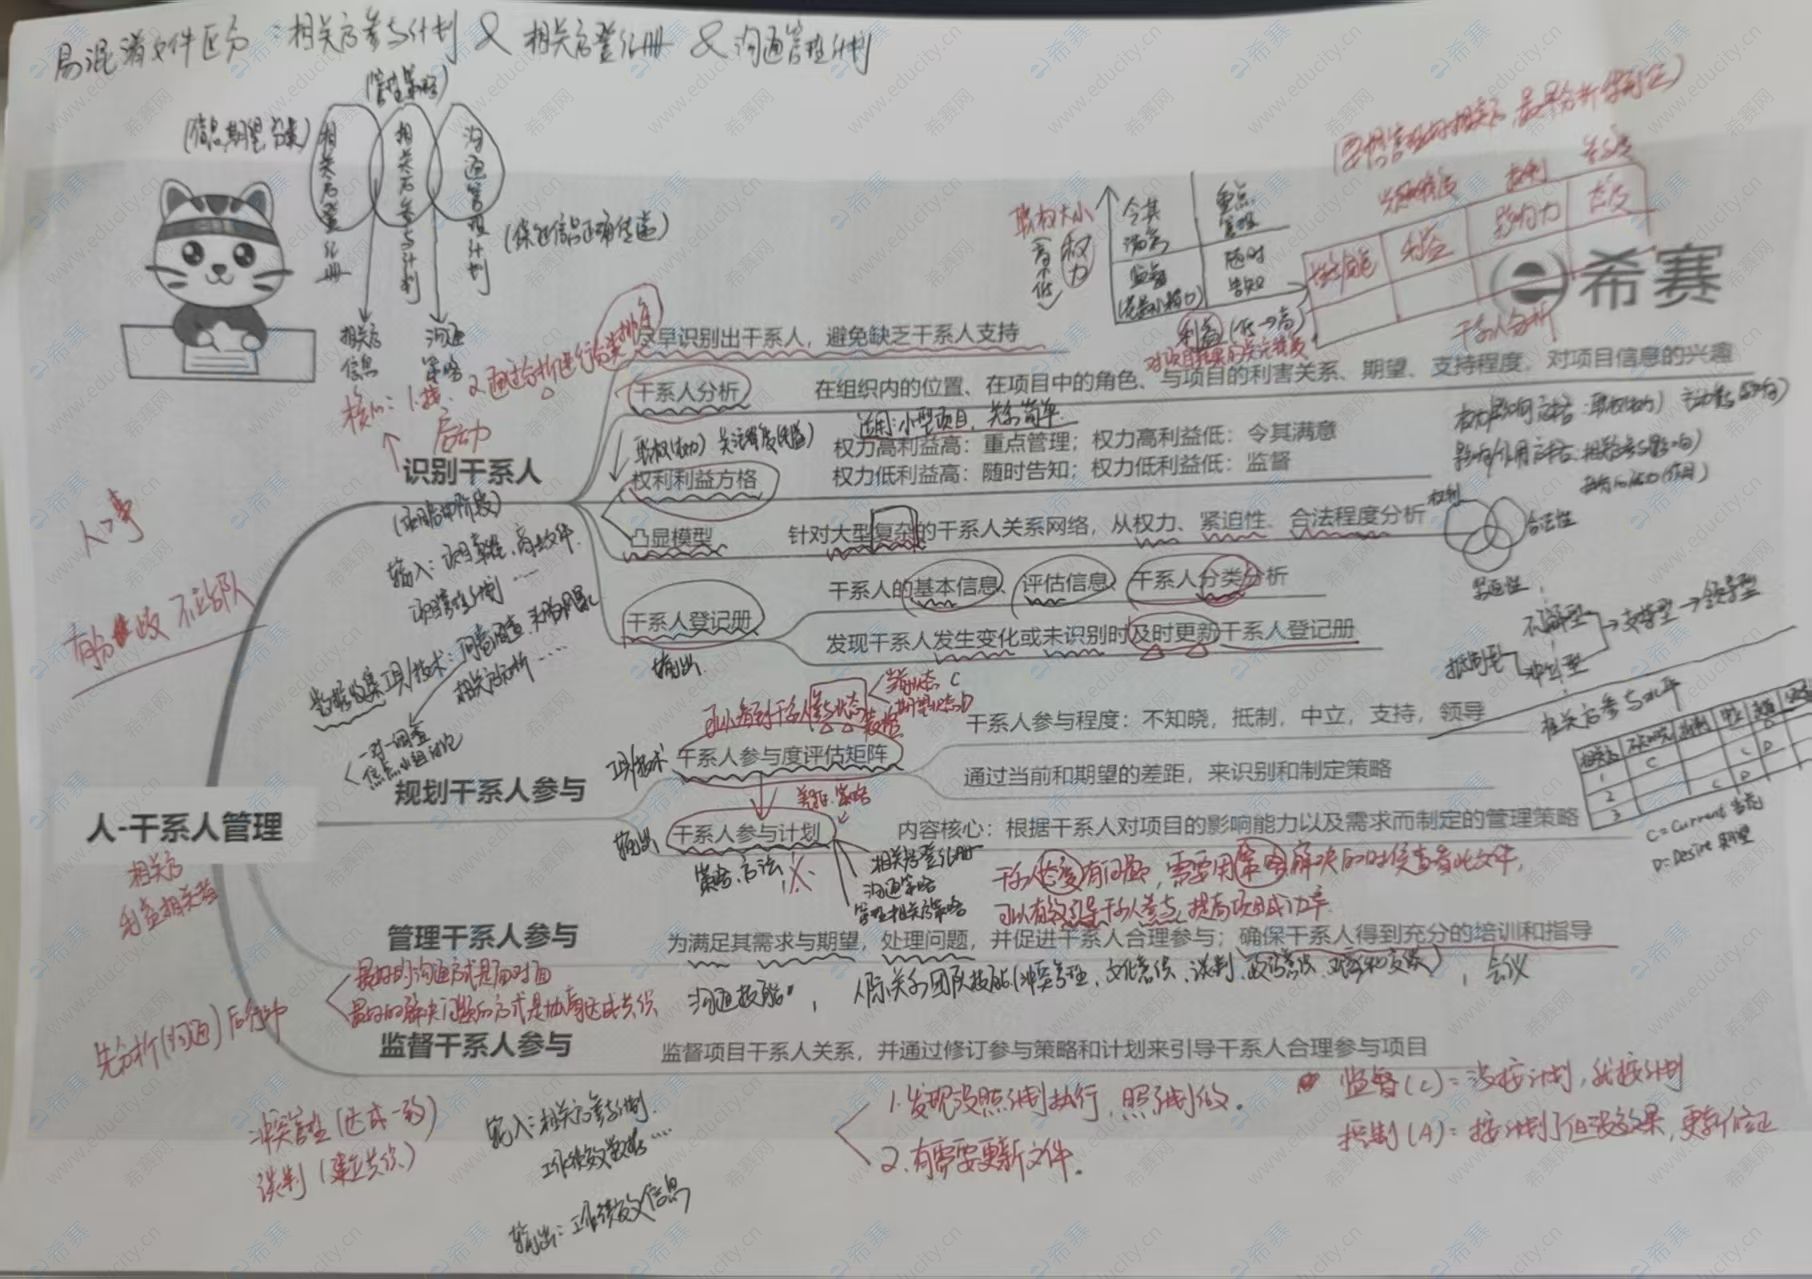 易混淆文件区分：相关方参与计划 & 相关方登记册 & 沟通管理计划
(管理策略)
(信息,期望,分类)
相关方登记册
相关方参与计划
沟通管理计划
(保证信息正确传递)
相关方信息
沟通策略
职权大小
(高
低)
权力
令其满意
重点管理
监督
随时告知
利益(低→高)
影响力
态度
利益
干系人分析
希赛
尽早识别出干系人，避免缺乏干系人支持
核心：1.
2.通过分析进行分类排序
启动
干系人分析
在组织内的位置、在项目中的角色、与项目的利害关系、期望、支持程度，对项目信息的兴趣
适用:小型项目，关系简单
职权(权力) 关注程度(利益)
权利利益方格
权力高利益高：重点管理；权力高利益低：令其满意
权力低利益高：随时告知；权力低利益低：监督
识别干系人
凸显模型
针对大型复杂的干系人关系网络，从权力、紧迫性、合法程度分析
权利
合法性
紧迫性
干系人登记册
输出
干系人的基本信息、评估信息、干系人分类分析
发现干系人发生变化或未识别时及时更新干系人登记册
人>事
有分歧 不站队
输入：项目章程，商业文件
项目管理计划……
数据收集工具/技术：问卷调查，头脑风暴
相关方分析……
一对一调查
焦点小组讨论
不知晓型
抵制型
中立型
支持型→领导型
相关方参与水平
可以看到干系人参与状态
当前状态 C
期望状态 D
规划干系人参与
工具/技术
干系人参与度评估矩阵
干系人参与程度：不知晓，抵制，中立，支持，领导
通过当前和期望的差距，来识别和制定策略
相关方 不知晓 抵制 中立 支持
1 C
2 C D
3 C D
C=Current 当前
D=Desire 期望
差距,策略
输出
干系人参与计划
内容核心：根据干系人对项目的影响能力以及需求而制定的管理策略
策略、方法
相关方登记册
沟通策略
管理相关方策略
干系人态度有问题，需要用策略解决的时候查看此文件，
可以有效引导干系人参与，提高项目成功率
人-干系人管理
相关方
利益相关者
管理干系人参与
为满足其需求与期望，处理问题，并促进干系人合理参与；确保干系人得到充分的培训和指导
最好的沟通方式是面对面
最好的解决问题的方式是协商达成共识
沟通技能，人际关系团队技能(冲突管理、文化意识、谈判、政治意识、观察和交谈)，会议
先分析(沟通)后行动
监督干系人参与
监督项目干系人关系，并通过修订参与策略和计划来引导干系人合理参与项目
冲突管理(达成一致)
谈判(建立共识)
输入：相关方参与计划.
工作绩效数据……
输出：工作绩效信息
1.发现没照计划执行，照计划做。
2.有需要更新文件。
监督(C)=没按计划，就按计划
控制(A)=按计划了但没效果，更新修正